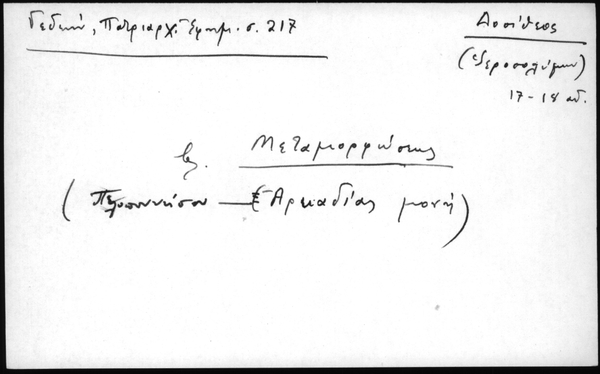 Γεδεών, Πατριαρχ. Εφημ. σ. 217
Δοσίθεος
(Ιεροσολύμων)
17-18 αι.
βλ. Μεταμορφώσεως
(Πελοποννήσου — Αρκαδίας μονή)